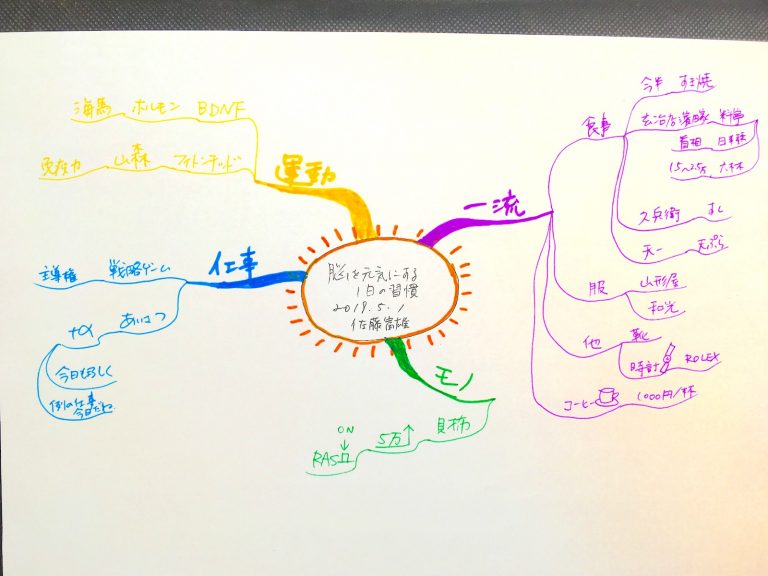 脳を元気にする
1日の習慣
2019.5.1
佐藤富雄
一流
食事
今半 すき焼
玄冶店濱田家 料亭
首相 日本橋
1.5〜2.5万
久兵衛 すし
天一 天ぷら
服
山形屋
和光
他
靴
時計 ROLEX
コーヒー 1000円/杯
モノ
財布
5万↑
ON
↓
RAS
仕事
戦略ゲーム
主導権
あいさつ
+α
今日もよろしく
例の仕事
今日だね
運動
海馬 ホルモン BDNF
免疫力 山森 フィトンチッド